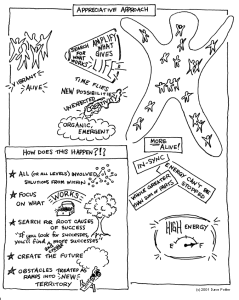 APPRECIATIVE APPROACH
VIBRANT
ALIVE
SEARCH
FOR
WHAT
WORKS
AMPLIFY
WHAT
GIVES
LIFE
TIME FLIES
NEW POSSIBILITIES
UNEXPECTED
ORGANIC,
EMERGENT
MORE
ALIVE!
IN-SYNC
ENERGY CAN'T BE
STOPPED
WHOLE GREATER
THAN SUM OF PARTS
HIGH ENERGY
E
F
HOW DOES THIS HAPPEN?!?
ALL (OR ALL LEVELS) INVOLVED
SOLUTIONS FROM WITHIN
FOCUS
ON WHAT
WORKS
SEARCH FOR ROOT CAUSES
OF SUCCESS
"If you look for successes,
you'll find more successes"
CREATE THE FUTURE
OBSTACLES TREATED AS
RAMPS INTO NEW
TERRITORY
(c) 2001 Dave Potter